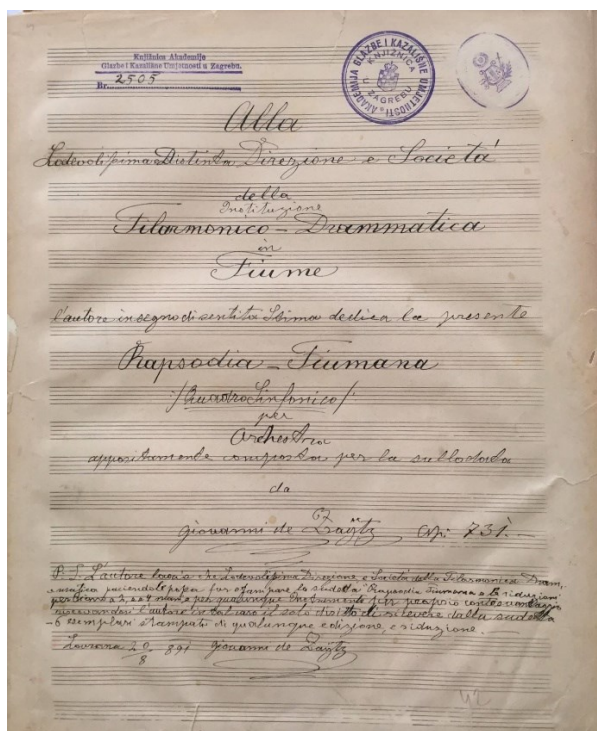 Knjižnica Akademije
Glazbe i Kazališne Umjetnosti u Zagrebu.
Br. 2505
AKADEMIJA GLAZBE I KAZALIŠNE UMJETNOSTI
KNJIŽNICA
U ZAGREBU
Alla
Lodevolissima Distinta Direzione e Società
della
Instituzione
Filarmonico-Drammatica
in
Fiume
l'autore in segno di sentita Stima dedica la presente
Rapsodia-Fiumana
/:Quadro Sinfonico:/
per
Orchestra
appositamente composta per la sullodata
da
Giovanni de Zaytz Op: 731.
P.S. L'autore che Lodevolissima Direzione, e Società della Filarmonica Dram,
"Rapsodia Fiumana o le riduzioni
a 2, e a 4 mani e per in proprio conto e vantaggio
l'autore in tal caso il solo diritto di dalla
-6 esemplari stampati di qualunque edizione, e riduzione.
Lovrana 20/8 891 Giovanni de Zaytz
42